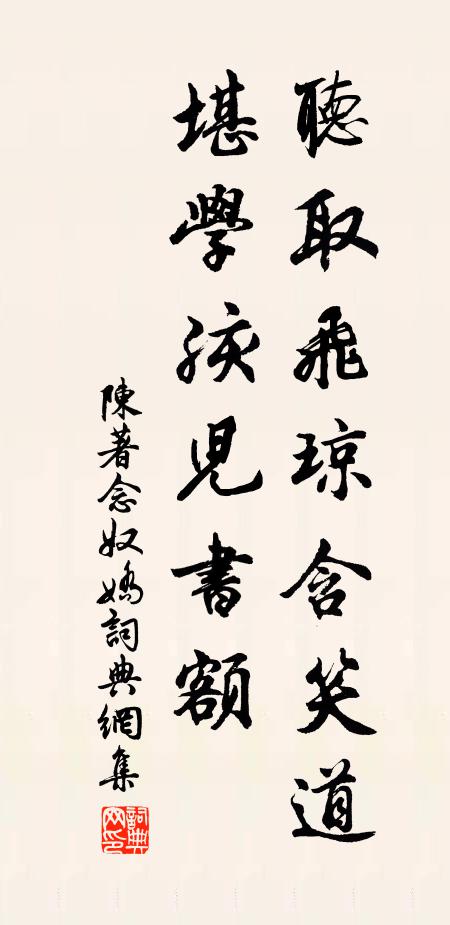 聽取飛瓊含笑道
堪學孩兒書額
陳著念奴嬌詞典網集
詞典网印